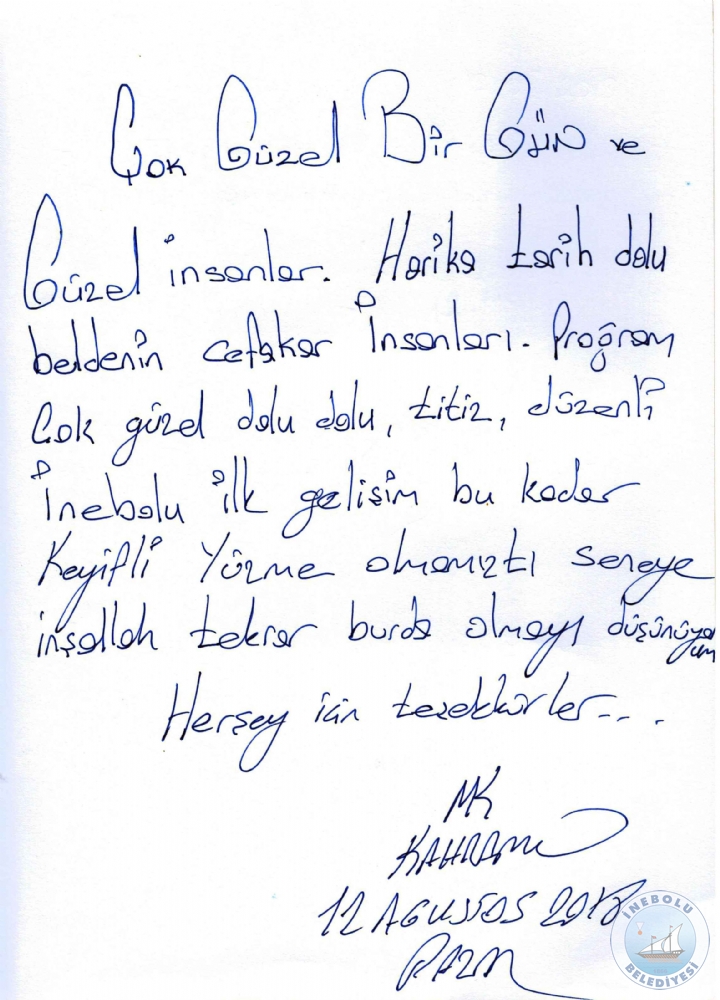 Çok Güzel Bir Gün ve
Güzel insanlar. Harika tarih dolu
beldenin cefakar İnsanları. Proğram
Çok güzel dolu dolu, titiz, düzenli
İnebolu ilk gelişim bu kadar
Keyifli Yüzme olmamıztı seneye
inşallah tekrar burda olmayı düşünüyorum
Herşey için tezekkürler...
MK
KAHRAMAN
12 AGUSTOS
PAZAR
İNEBOLU
BELEDİYESİ